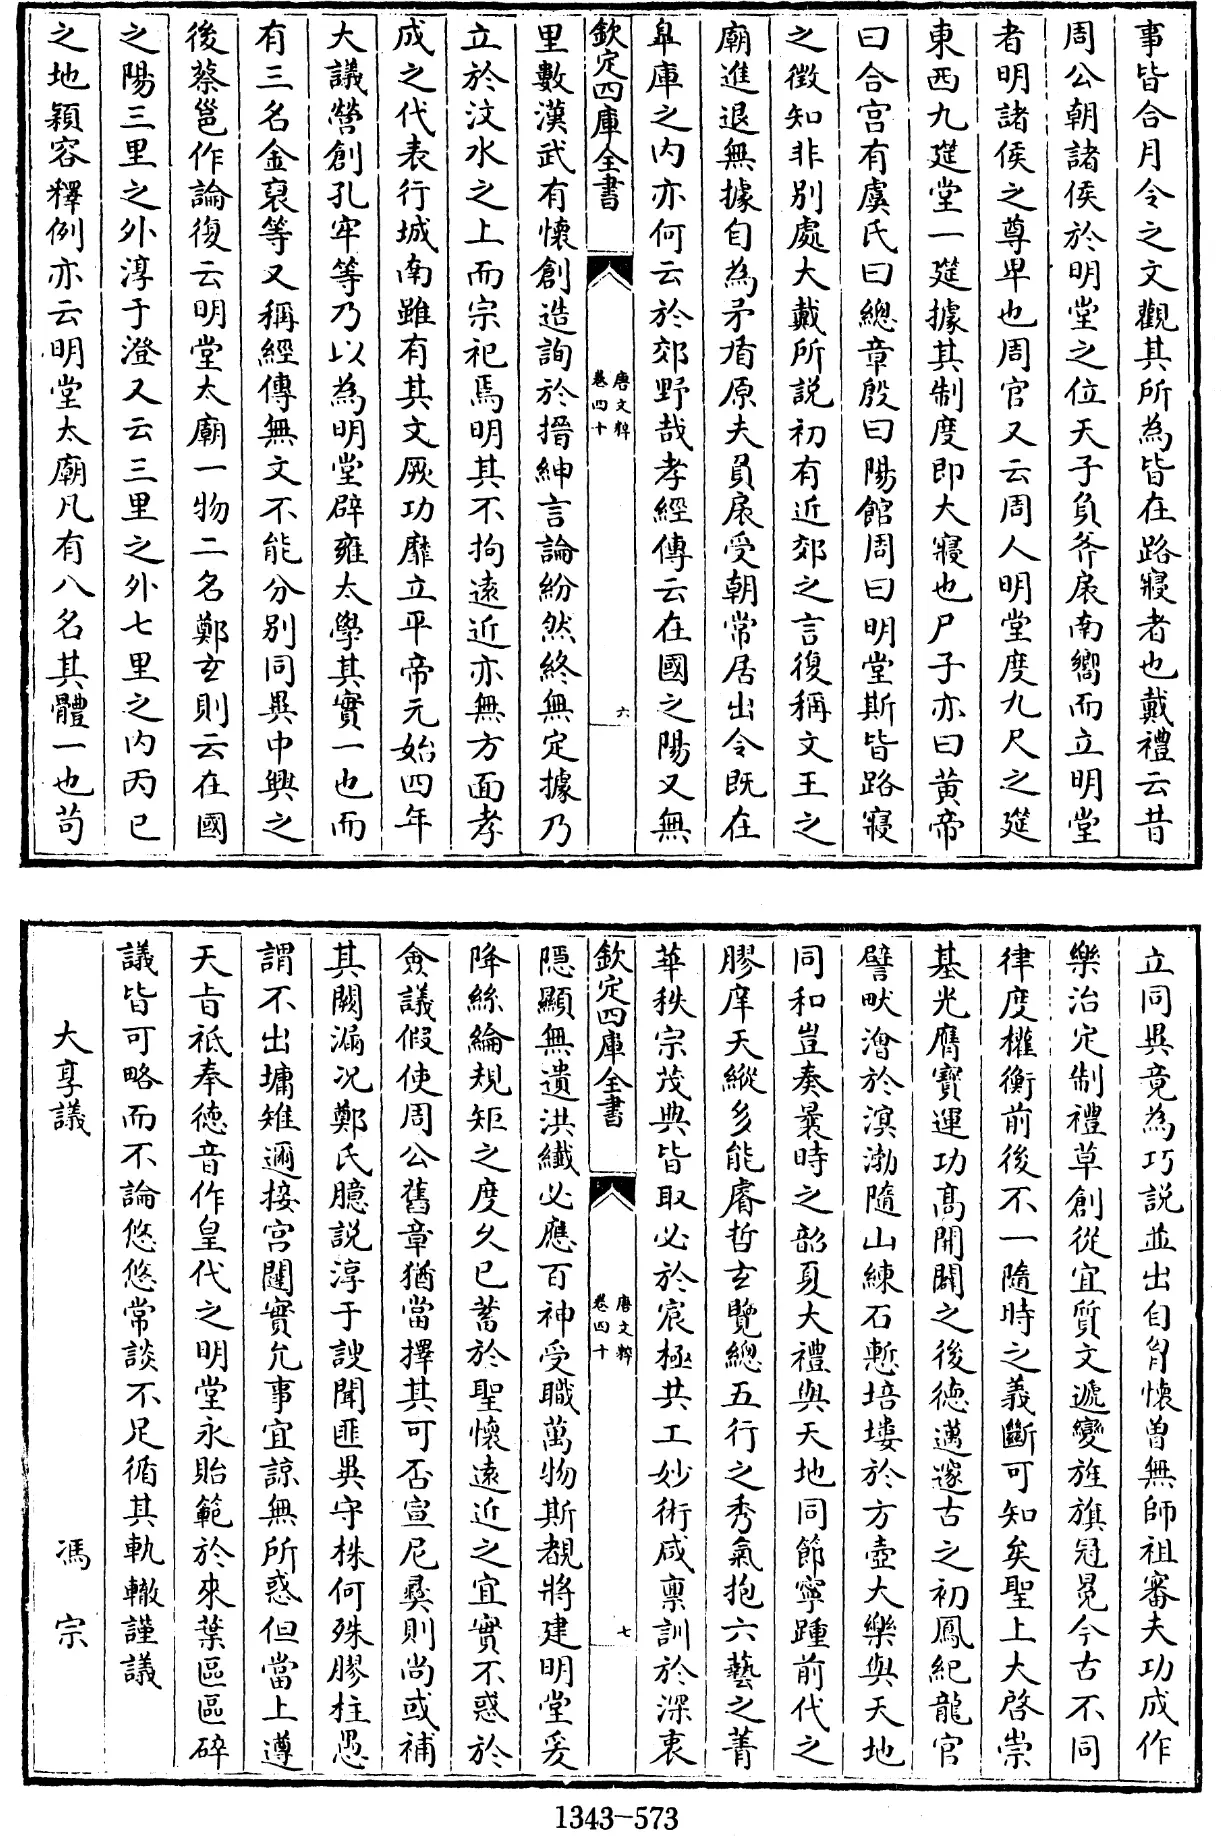 事皆合月令之文觀其所為皆在路寢者也戴禮云昔
周公朝諸侯於明堂之位天子負斧扆南嚮而立明堂
者明諸侯之尊卑也周官又云周人明堂度九尺之筵
東西九筵堂一筵據其制度即大寢也尸子亦曰黃帝
曰合宫有虞氏曰總章殷曰陽館周曰明堂斯皆路寢
之徵知非別處大戴所說初有近郊之言復稱文王之
廟進退無據自為矛盾原夫負扆受朝常居出令既在
臯庫之内亦何云於郊野哉孝經傳云在國之陽又無
欽定四庫全書
唐文粹
卷四十
六
里數漢武有懷創造詢於搢紳言論紛然終無定據乃
立於汶水之上而宗祀焉明其不拘遠近亦無方面孝
成之代表行城南雖有其文厥功靡立平帝元始四年
大議營創孔牢等乃以為明堂辟雍太學其實一也而
有三名金裒等又稱經傳無文不能分別同異中興之
後蔡邕作論復云明堂太廟一物二名鄭玄則云在國
之陽三里之外淳于澄又云三里之外七里之内丙巳
之地穎容釋例亦云明堂太廟凡有八名其體一也苟
立同異竟為巧說並出自胷懷曽無師祖審夫功成作
樂治定制禮草創從宜質文遞變旌旗冠冕今古不同
律度權衡前後不一隨時之義斷可知矣聖上大啓崇
基光膺寶運功髙開闢之後徳邁邃古之初鳳紀龍官
譬畎澮於溟渤隨山練石慙培塿於方壺大樂與天地
同和豈奏曩時之韶夏大禮與天地同節寧踵前代之
膠庠天縱多能睿哲玄覽總五行之秀氣抱六藝之菁
華秩宗茂典皆取必於宸極共工妙術咸禀訓於深衷
欽定四庫全書
唐文粹
卷四十
七
隠顯無遺洪纎必應百神受職萬物斯覩將建明堂爰
降絲綸規矩之度久已蓄於聖懷遠近之宜實不惑於
僉議假使周公舊章猶當擇其可否宣尼彛則尚或補
其闕漏况鄭氏臆說淳于謏聞匪異守株何殊膠柱愚
謂不出墉雉邇接宫闥實允事宜諒無所惑但當上遵
天旨祗奉徳音作皇代之明堂永貽範於來葉區區碎
議皆可略而不論悠悠常談不足循其軌轍謹議
大享議　馮宗
1343-573